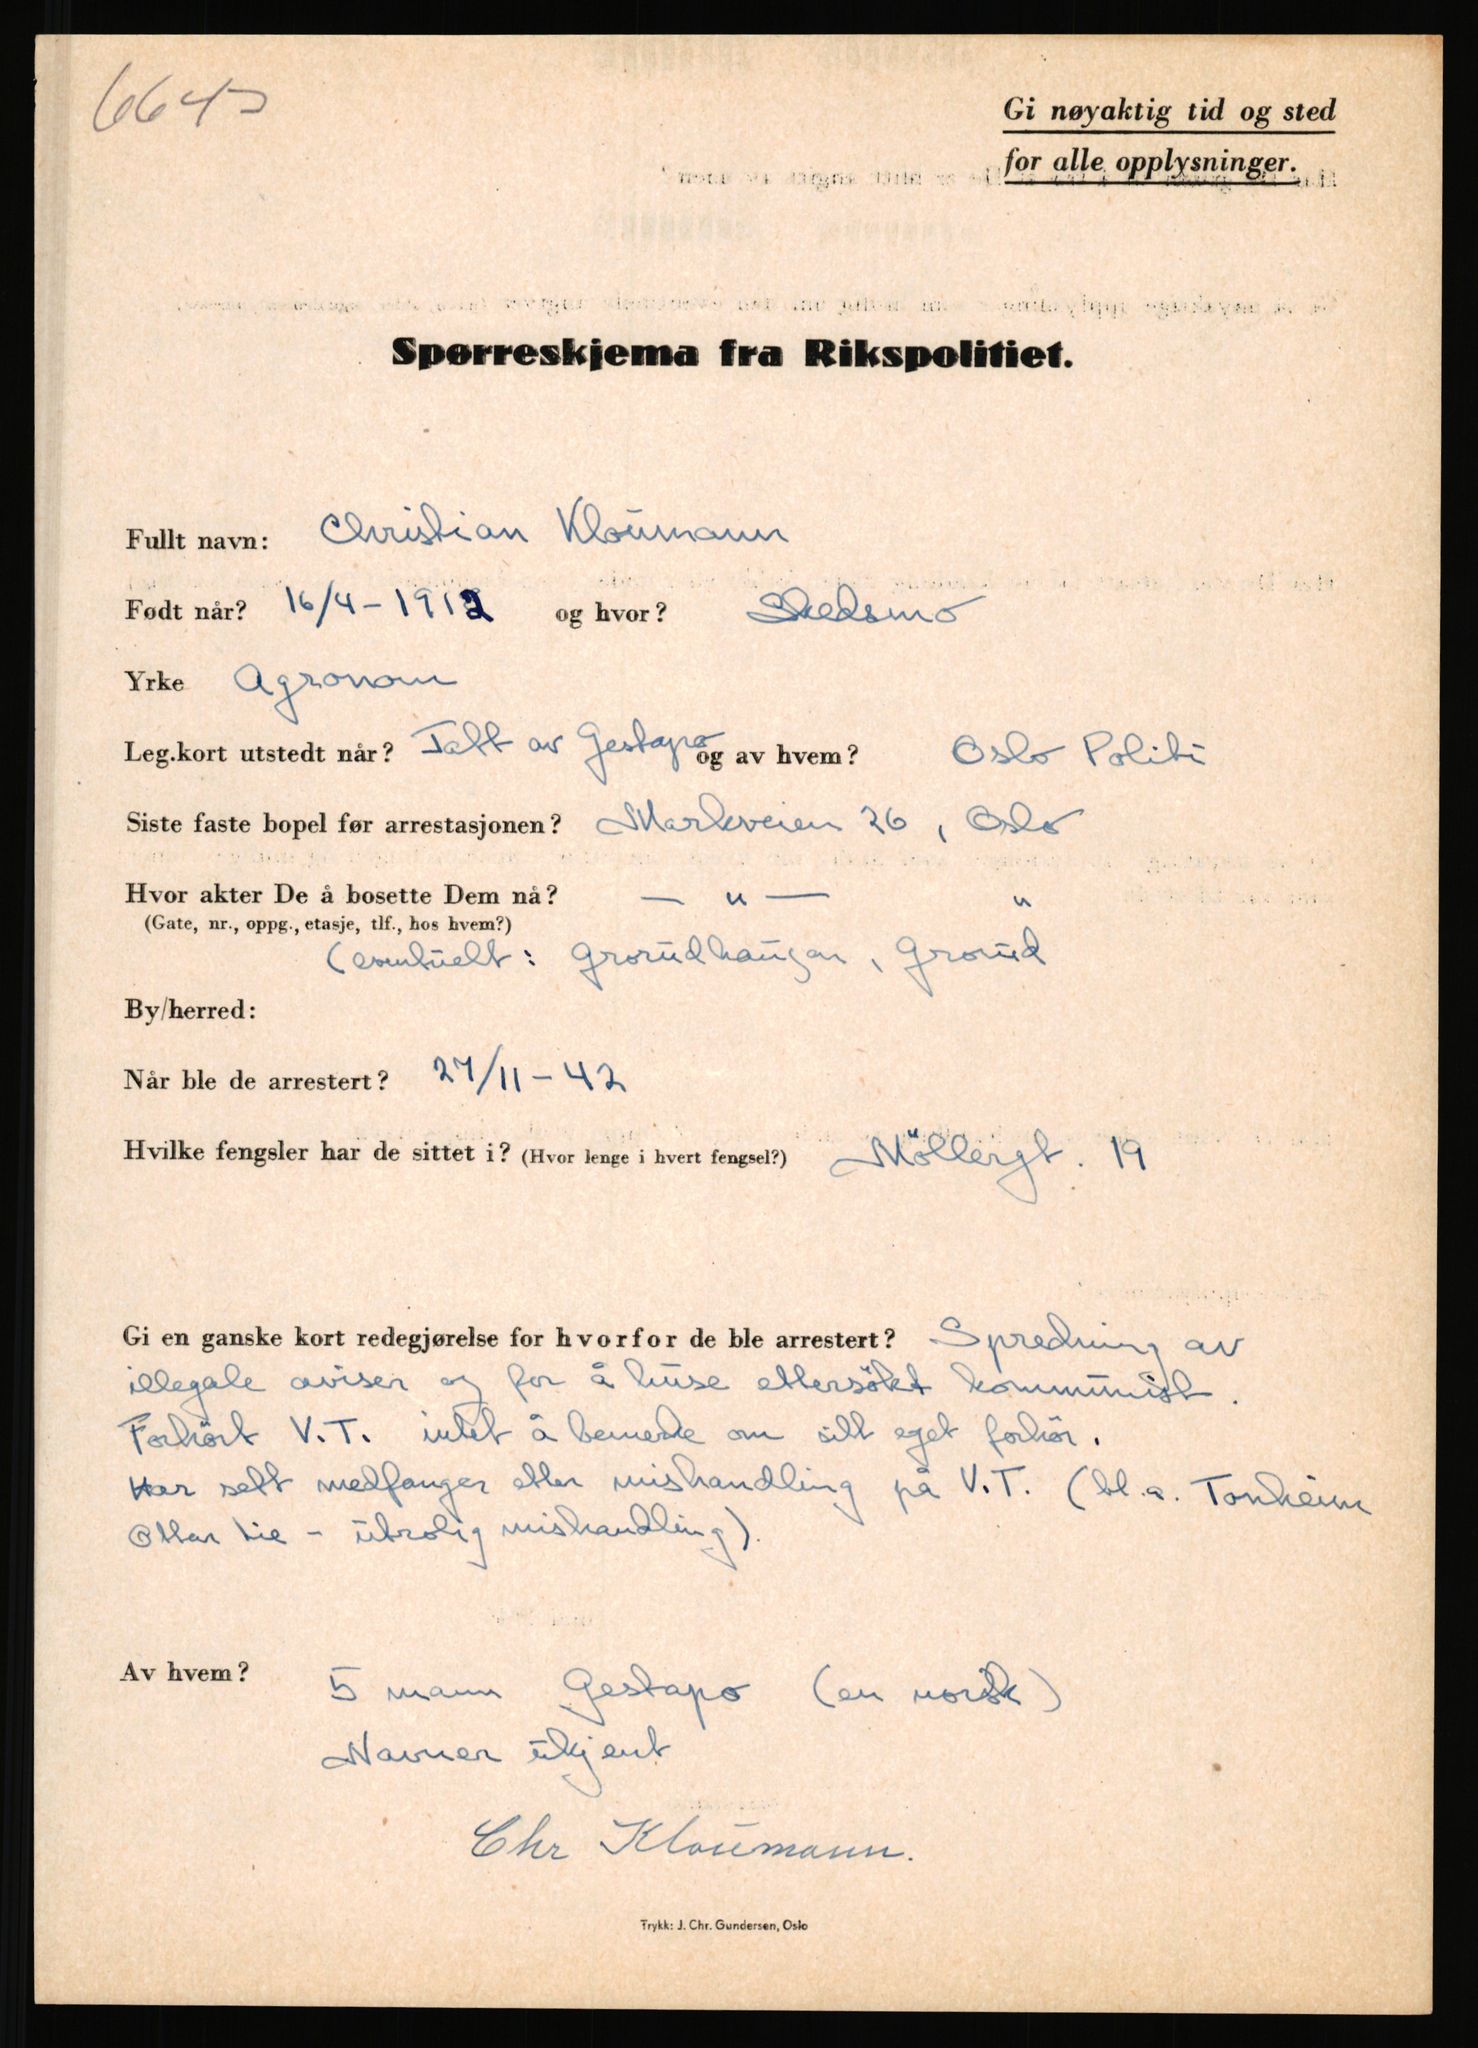 6645
Gi nøyaktig tid og sted
for alle opplysninger.
Spørreskjema fra Rikspolitiet.
Fullt navn: Christian Kloumann
Født når? 16/4 - 1912 og hvor? Skedsmo
Yrke Agronom
Leg.kort utstedt når? Tatt av Gestapo og av hvem? Oslo Politi
Siste faste bopel før arrestasjonen? Markveien 26, Oslo
Hvor akter De å bosette Dem nå? — " — "
(Gate, nr., oppg., etasje, tlf., hos hvem?)
(eventuelt: Grorudhaugen, Grorud
By/herred:
Når ble de arrestert? 27/11 - 42
Hvilke fengsler har de sittet i? (Hvor lenge i hvert fengsel?) Möllergt. 19
Gi en ganske kort redegjørelse for hvorfor de ble arrestert? Spredning av
illegale aviser og for å huse ettersökt kommunist.
Forhört V.T. intet å bemerke om sitt eget forhör.
Har sett medfanger etter mishandling på V.T. (bl.a. Tonheim
Ottar Lie - utrolig mishandling).
Av hvem? 5 mann Gestapo (en norsk)
Navner ukjent
Chr Kloumann.
Trykk: J. Chr. Gundersen, Oslo